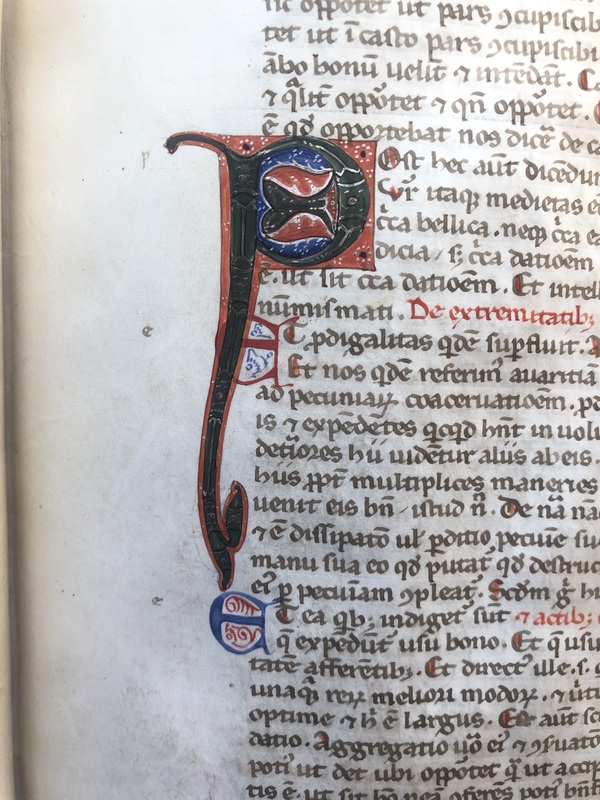 nc oppōtet ut pars ꝯcupiscib
tet ut ī casto pars ꝯcupiscibi
ābo bonū uelit ⁊ intēdāt. C
⁊ qͣlit̄ oppōtet ⁊ qn̄ oppōtet.
ē qđ opportebat nos dice̅ de ca
p Post hec aūt dicēdu
itaqꝫ medietas e
c̄ca bellica. neqꝫ c̄ca ea
dicia / sꝫ c̄ca datioēm
ē. ut sit c̄ca datioēm. Et intell
nūmismati. De extremitatibꝫ
e Et ꝓdigalitas qͥdē suꝑfluit. A
Et nos qͥdē referim᷒ auaritiā
ad pecuniaꝝ coaceruatioēm. ꝓd
is ⁊ expēdētes qͥcqͥd hn̄t in uolu
detiores hii uidētur aliis ab eis.
hiis ꝓpt̄ multiplices maneries
uenit eis bn̄ / istud n̄. De nā na
⁊ ē dissipatō ul̄ ꝑditio pecuie su
manu sua eo qđ putat̉ qđ destruc
ei᷒ ꝑ pecuiam ꝯpleat̉. Scd̄m g̊ h
e Et ea qͥbꝫ indiget̉ sūt ⁊ actibꝫ
q̄ expēdiūt usū bono. Et q̄ usu
tatē afferētibꝫ. Et direct᷒ ille .s. q
unaqͣqꝫ reꝝ meliori modoꝝ. ⁊ uīti
optime ⁊ h̄ ē largus. Est aūt sc
datio. Aggregatio uō ei᷒ ⁊ ꝯsuatō
poti᷒ ut det ubi oppōtet q̄ ut accip